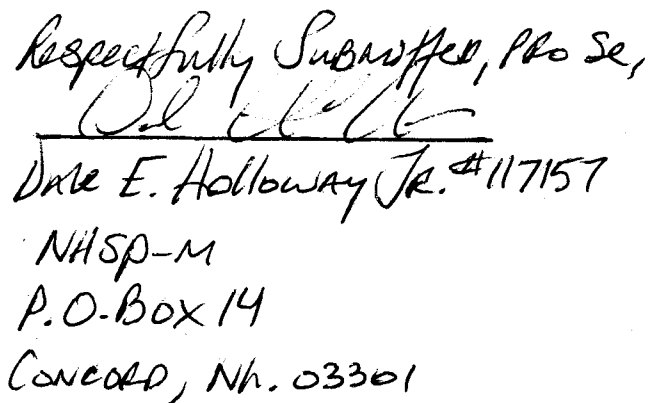 Respectfully Submitted, Pro Se,
Dale E. Holloway Jr. #117157
NHSP-M
P.O. Box 14
Concord, Nh. 03301